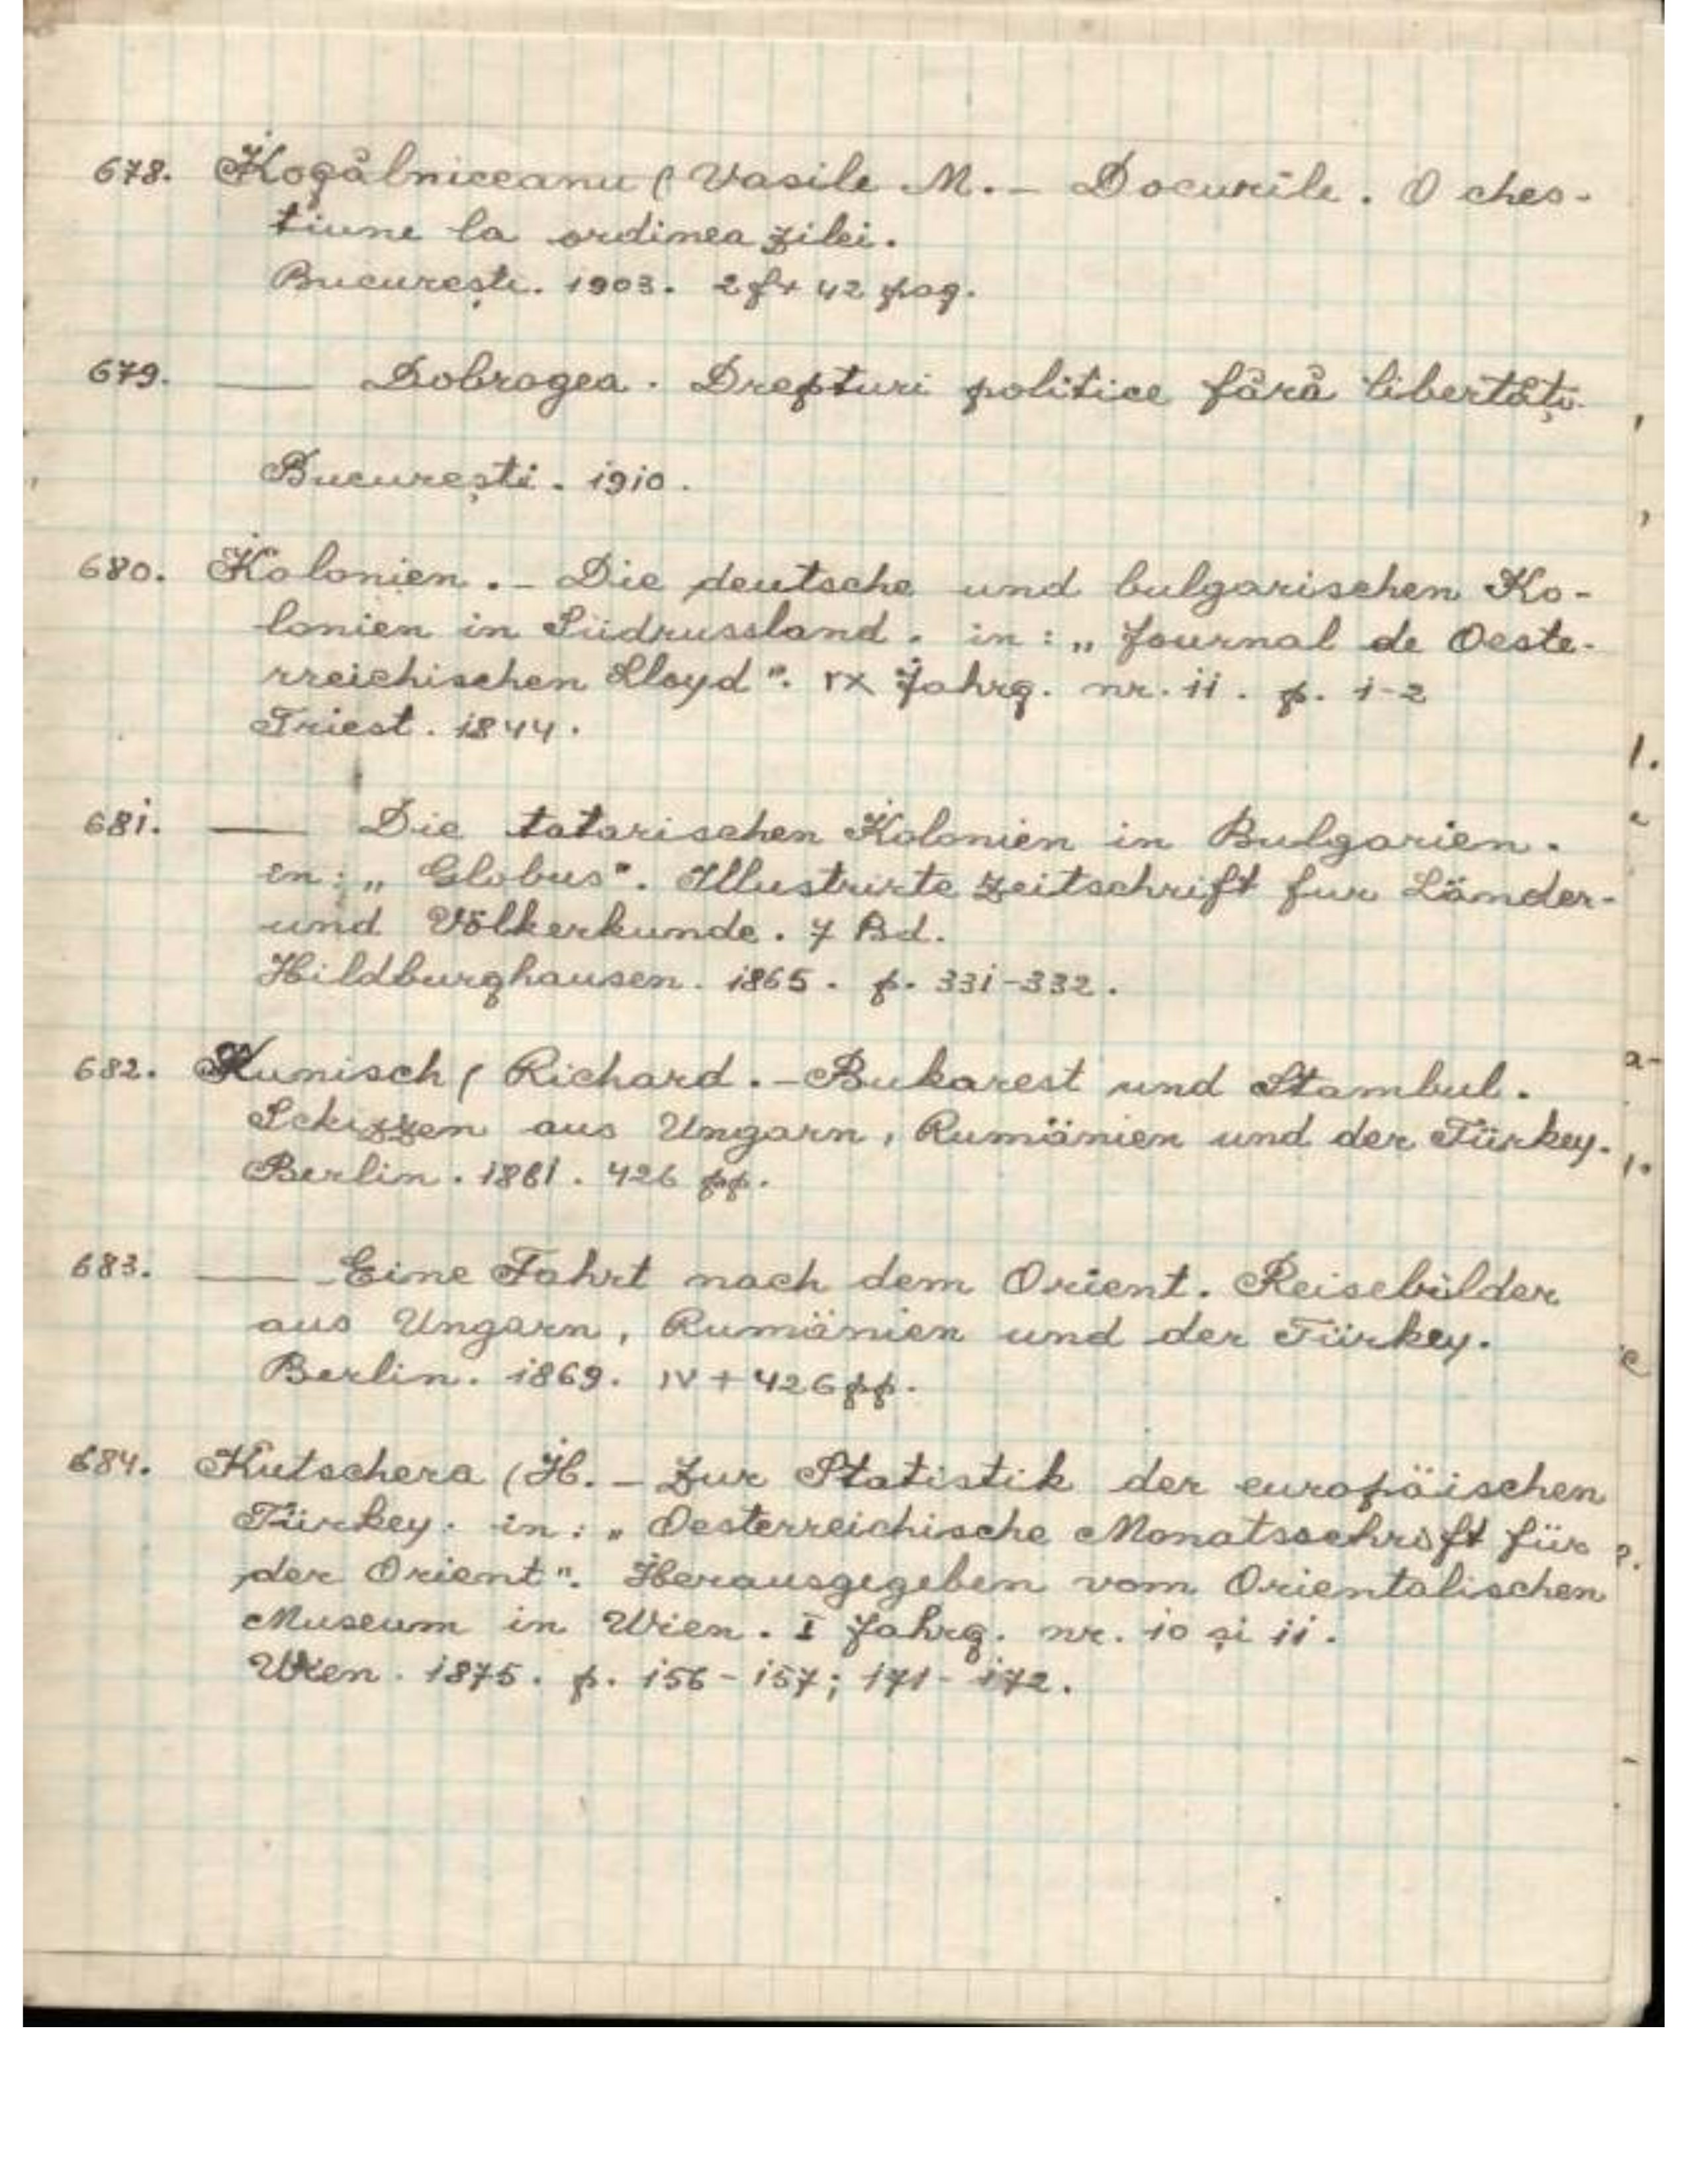 678. Kogălniceanu (Vasile M. - Docurile. O ches-
tiune la ordinea zilei.
București. 1903. 2 f + 42 pag.
679. — Dobrogea. Drepturi politice fără libertăți.
București. 1910.
680. Kolonien. - Die deutsche und bulgarischen Ko-
lonien in Südrussland. in: „Journal de Oeste-
rreichischen Lloyd". IX Jahrg. nr. 11. p. 1-2
Triest. 1844.
681. — Die tatarischen Kolonien in Bulgarien.
in: „Globus". Illustrirte Zeitschrift fur Länder-
und Völkerkunde. 7 Bd.
Hildburghausen. 1865. p. 331-332.
682. Kunisch (Richard. - Bukarest und Stambul.
Schizzen aus Ungarn, Rumänien und der Türkey.
Berlin. 1861. 426 pp.
683. — Eine Fahrt nach dem Orient. Reisebilder
aus Ungarn, Rumänien und der Türkey.
Berlin. 1869. IV + 426 pp.
684. Kutschera (H. - Zur Statistik der europäischen
Türkey. in: „Oesterreichische Monatsschrift für
der Orient". Herausgegeben vom Orientalischen
Museum in Wien. I Jahrg. nr. 10 și 11.
Wien. 1875. p. 156-157; 171-172.